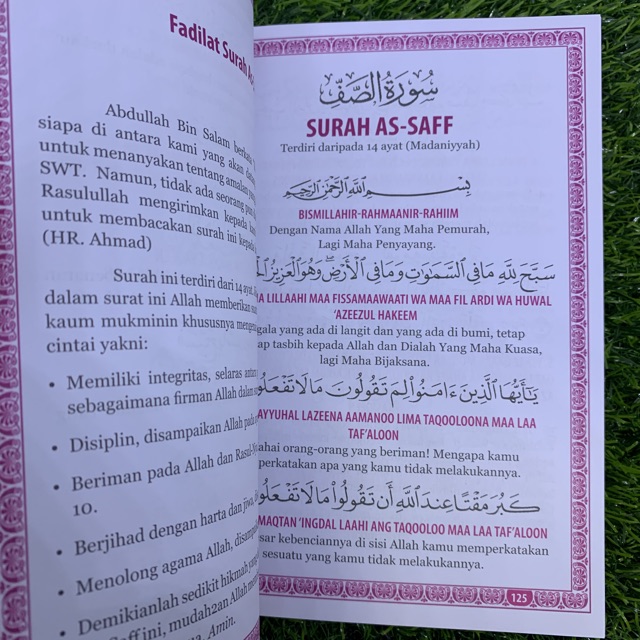 Fadilat Surah
Abdullah Bin Salam
siapa di antara kami yang akan
untuk menanyakan tentang amalan
SWT. Namun, tidak ada seorang
Rasulullah mengirimkan kepada
untuk membacakan surah ini kepada
(HR. Ahmad)
Surah ini terdiri dari 14 ayat.
dalam surat ini Allah memberikan
kaum mukminin khususnya
cintai yakni:
• Memiliki integritas, selaras
sebagaimana firman Allah dalam
• Disiplin, disampaikan Allah pada
• Beriman pada Allah dan
10.
• Berjihad dengan harta dan jiwa,
• Menolong agama Allah,
• Demikianlah sedikit hikmah
Saff ini, mudah2an Allah
Amin.
سُورَةُ الصَّفِّ
SURAH AS-SAFF
Terdiri daripada 14 ayat (Madaniyyah)
بِسْمِ اللَّهِ الرَّحْمَٰنِ الرَّحِيمِ
BISMILLAHIR-RAHMAANIR-RAHIIM
Dengan Nama Allah Yang Maha Pemurah,
Lagi Maha Penyayang.
سَبَّحَ لِلَّهِ مَا فِي السَّمَٰوَٰتِ وَمَا فِي الْأَرْضِ ۖ وَهُوَ الْعَزِيزُ
LILLAAHI MAA FISSAMAAWAATI WA MAA FIL ARDI WA HUWAL
'AZEEZUL HAKEEM
gala yang ada di langit dan yang ada di bumi, tetap
ap tasbih kepada Allah dan Dialah Yang Maha Kuasa,
lagi Maha Bijaksana.
يَٰٓأَيُّهَا الَّذِينَ ءَامَنُوا لِمَ تَقُولُونَ مَا لَا تَفْعَلُو
AYYUHAL LAZEENA AAMANOO LIMA TAQOOLOONA MAA LAA
TAF'ALOON
ahai orang-orang yang beriman! Mengapa kamu
perkatakan apa yang kamu tidak melakukannya.
كَبُرَ مَقْتًا عِندَ اللَّهِ أَن تَقُولُوا مَا لَا تَفْعَلُو
MAQTAN 'INGDAL LAAHI ANG TAQOOLOO MAA LAA TAF'ALOON
sar kebenciannya di sisi Allah kamu memperkatakan
sesuatu yang kamu tidak melakukannya.
125